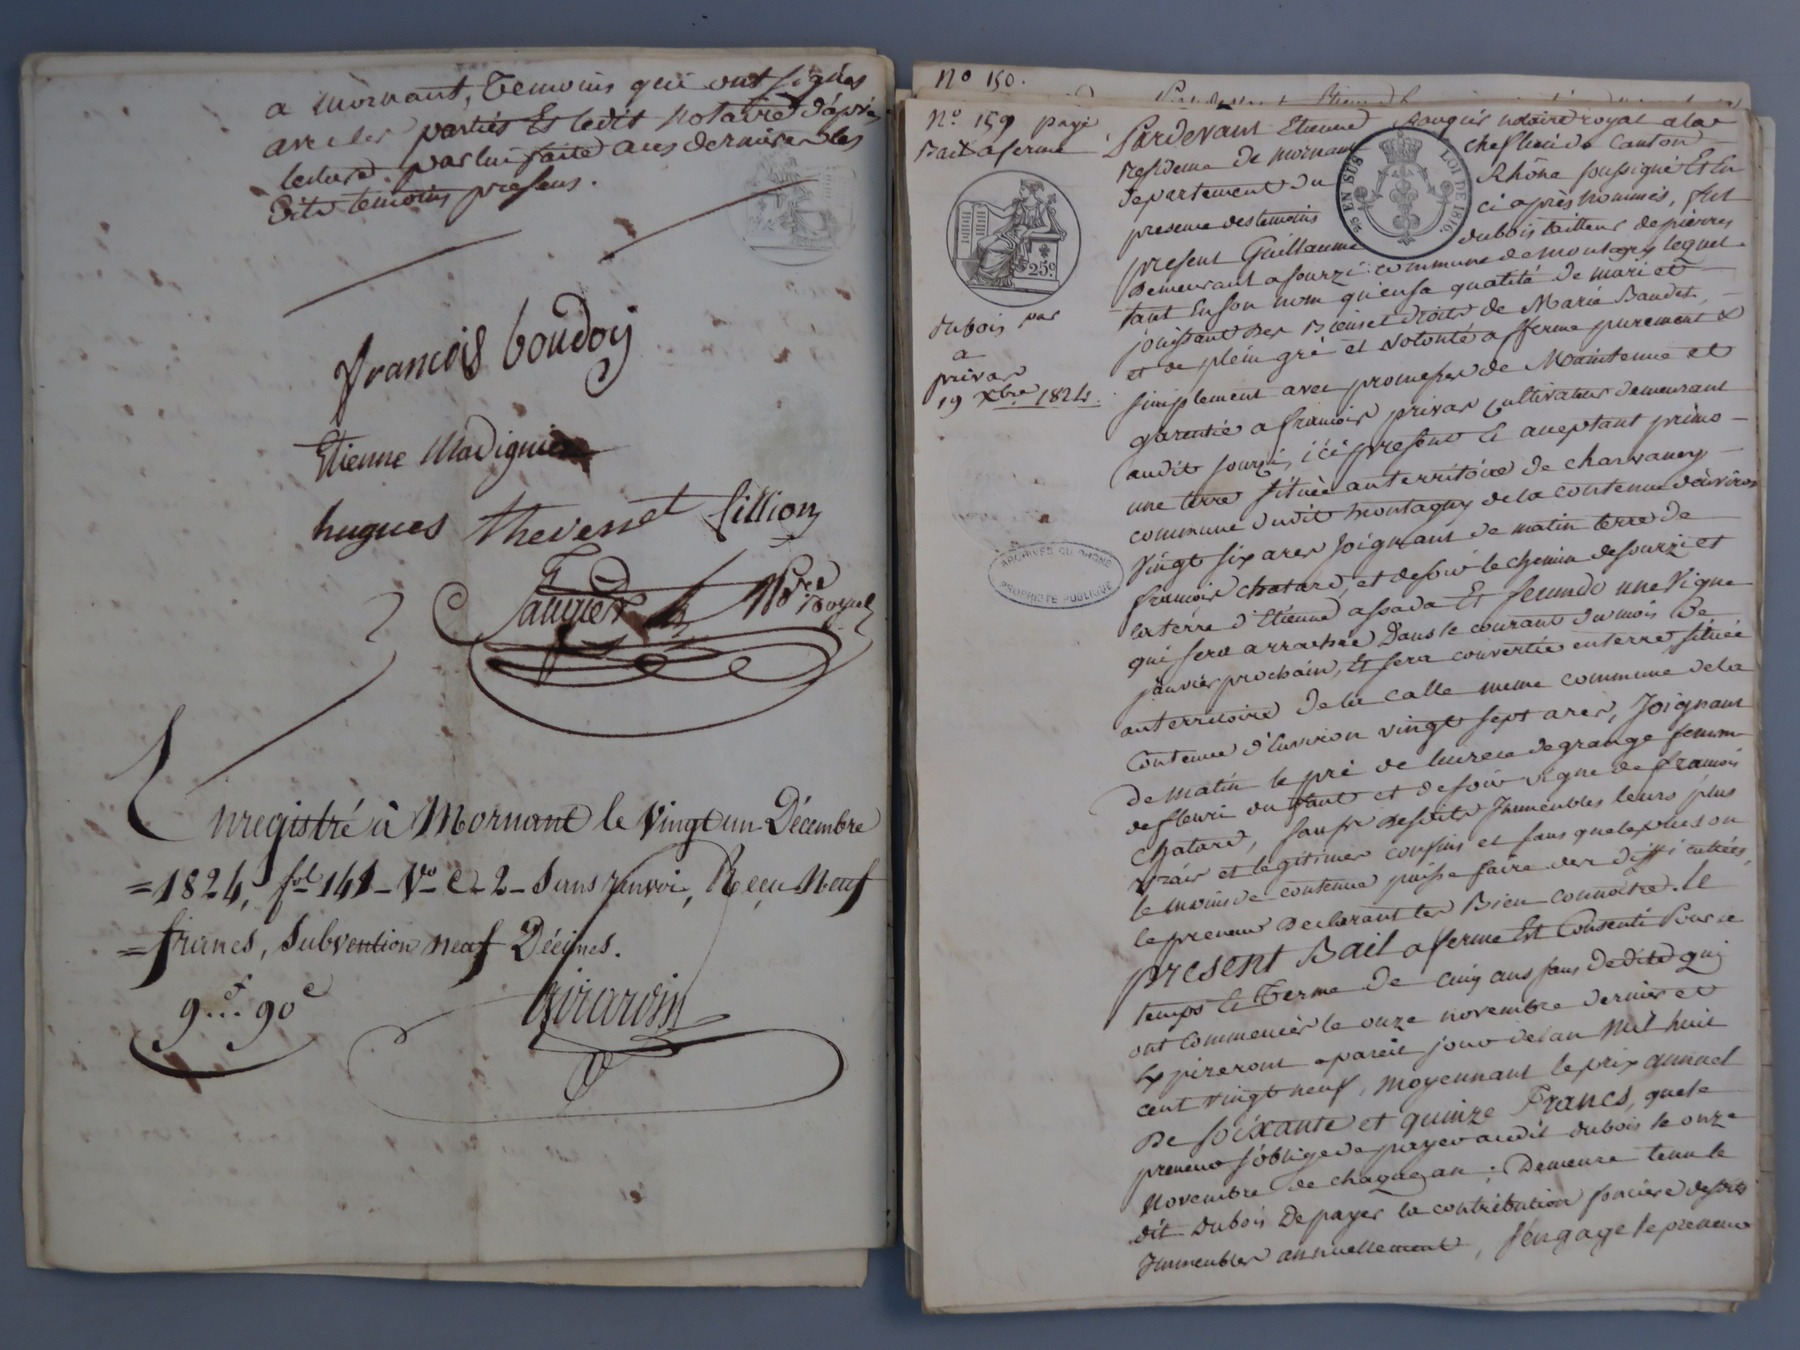 a mornant, temoins qui ont signés
avec les parties Et ledit notaire d'après
lecture par lui faite aus dernieres les
dits temoins presens.
françois boudoy
Etienne Madignier
hugues thevenet fillion
Saugier Nre Royal
Enregistré à Mornant le Vingt un Décembre
=1824, fol 141 Vo C. 2 Sans renvoi, Reçu Neuf
=francs, Subvention neuf Décimes.
9f 90c
Girardin
No 150.
No 159 payé
Bail a ferme
25c
dubois par
a
privas
19 Xbre 1824.
ARCHIVES DU RHONE
PROPRIETE PUBLIQUE
25 EN SUS LOI DE 1816.
Pardevant Etienne Saugier notaire royal a la
residence de mornant chef lieu de Canton
departement du Rhône soussigné Et En
presence des temoins ci après nommés, fut
present Guillaume dubois tailleur de pierres
demeurant a sourzi commune de montagny lequel
tant En son nom qu'en sa qualité de mari et
jouissant des Biens et droits de Marie Baudet,
et de plein gré et volonté afferme purement &
simplement avec promesse de Maintenue et
garentie a françois privas cultivateur demeurant
audit sourzi, ici present Et acceptant primo
une terre située au territoire de charvaney
commune dudit montagny de la contenue d'environ
Vingt six ares joignant de matin terre de
françois chatard, et de soir le chemin de sourzi et
la terre d'Etienne assada Et secundo une Vigne
qui sera arrachée Dans le courant du mois De
janvier prochain, Et sera convertie en terre, située
au territoire de la Calle meme commune de la
Contenue d'Environ vingt sept ares, Joignant
de matin le pré de lucrece degrange femme
de fleuri du faut et de soir vigne de françois
Chatard, sauf desdits Immeubles leurs plus
vrais et legitimes confins et sans que le plus ou
le moins de contenue puisse faire des difficultées,
le preneur Declarant les Bien Connoitre. Le
present Bail a ferme Est Consenti Pour le
temps Et Terme De cinq ans sans Dedite qui
ont commencés le onze novembre dernier et
Expireront a pareil jour de l'an Mil huit
cent vingt neuf, moyennant le prix annuel
De soixante et quinze Francs, que le
preneur s'oblige de payer audit dubois le onze
Novembre de chaque an ; Demeure tenu le
dit Dubois De payer la contribution fonciere desdits
Immeubles annuellement, s'engage le preneur